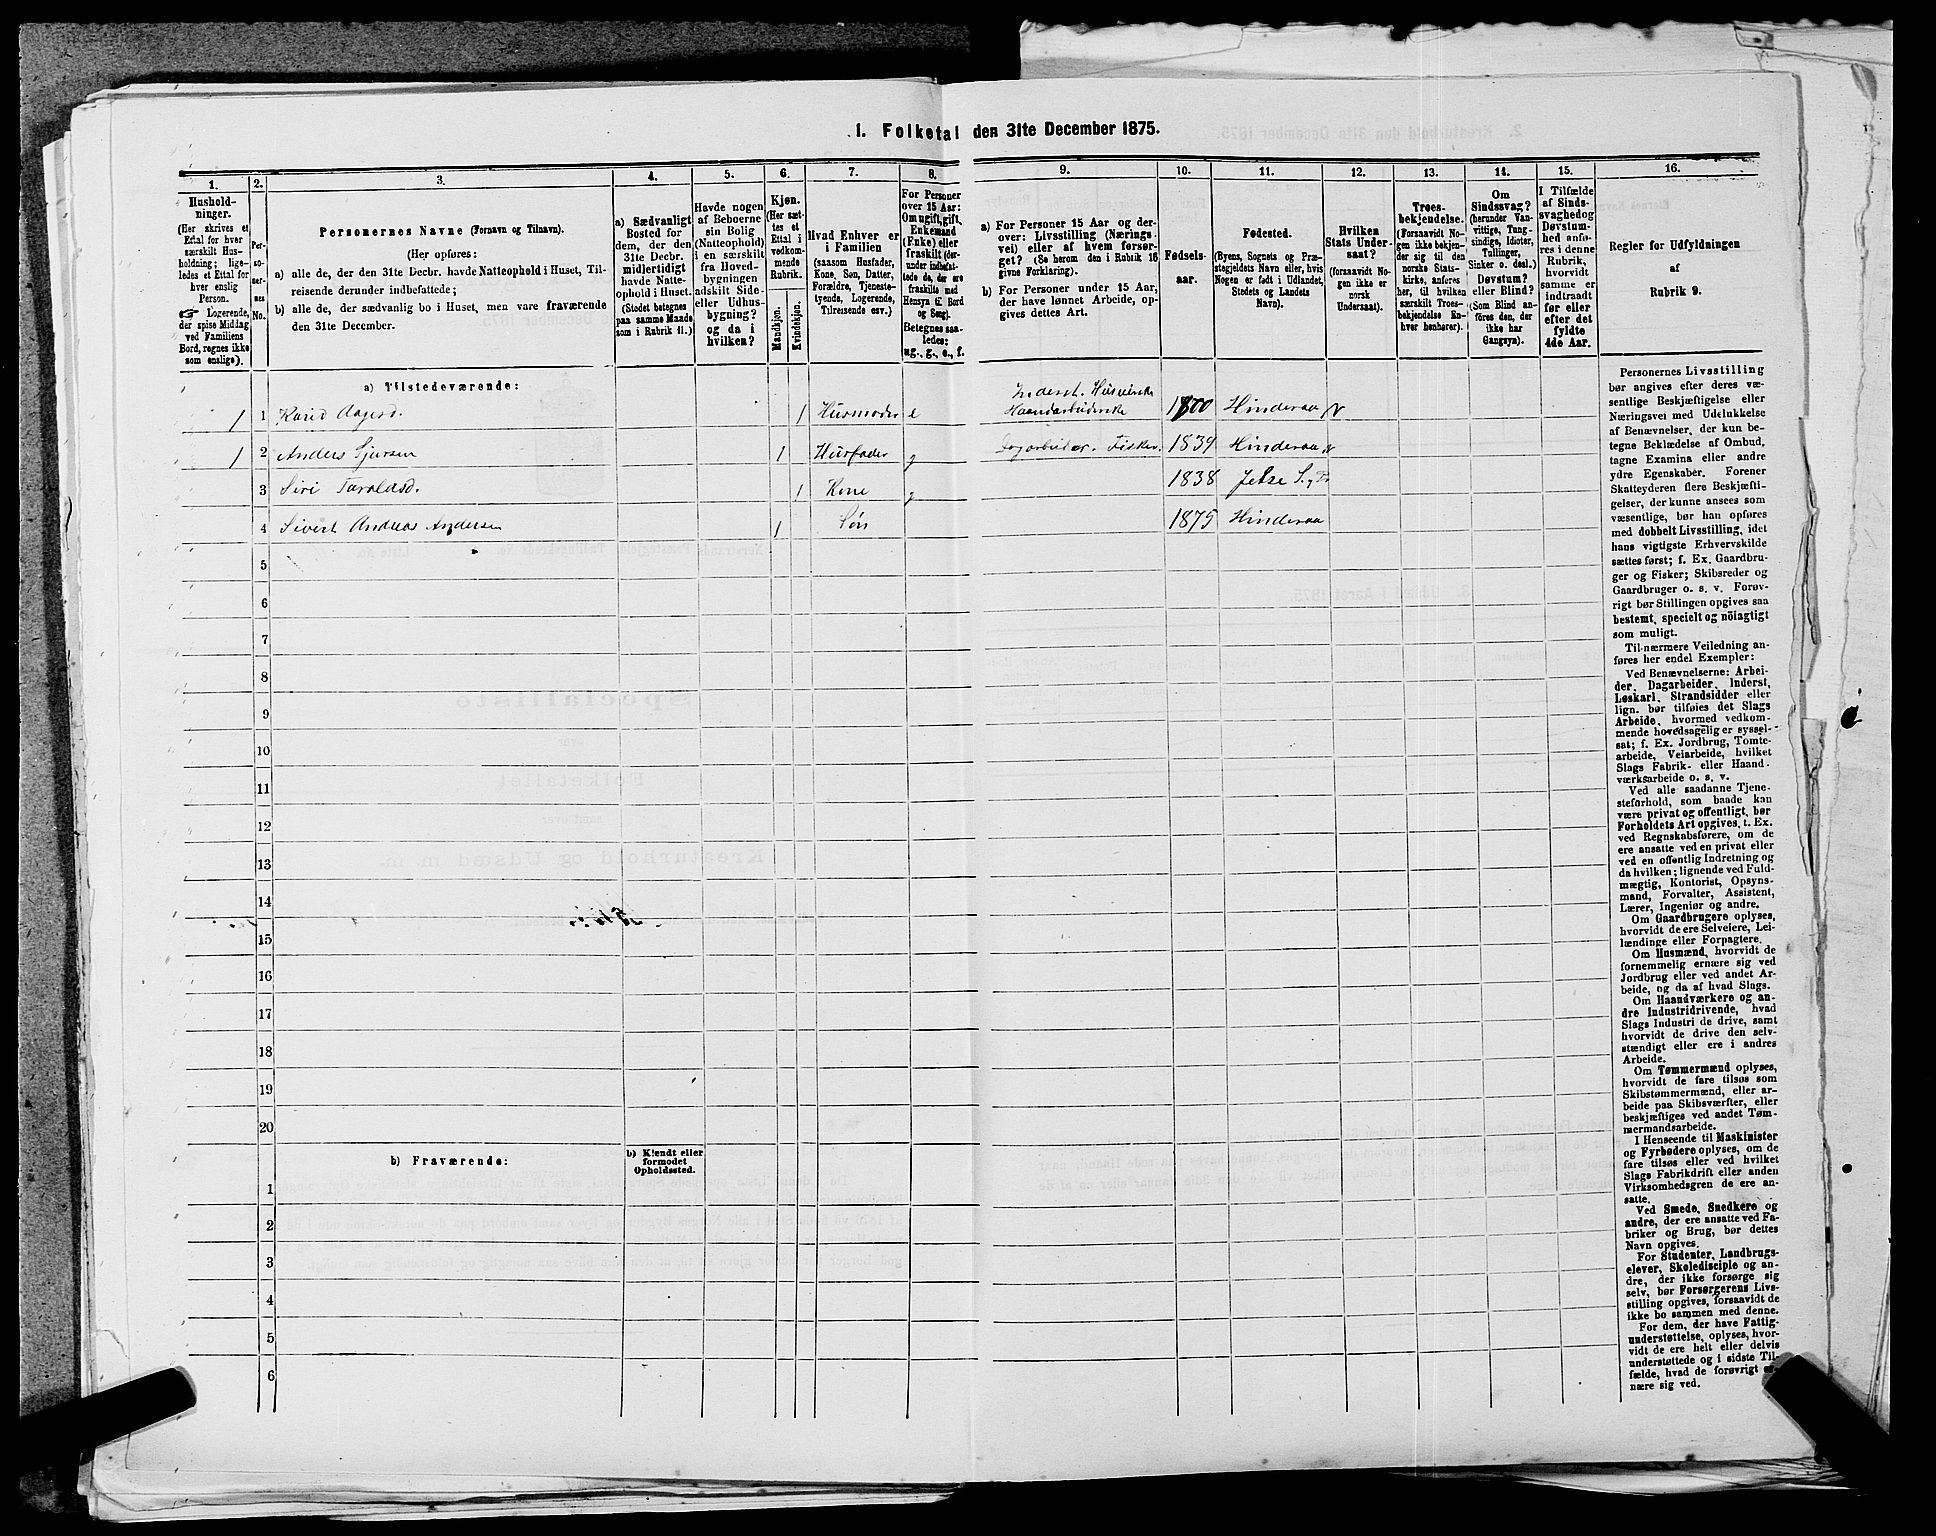 1. Folketal den 31te December 1875.
1.
Hushold-
ninger.
(Her skrives et
Ettal for hver
særskilt Hus-
holdning; lige-
ledes et Ettal for
hver enslig
Person.
☞ Logerende,
der spise Middag
ved Familiens
Bord, regnes ikke
som enslige).
2.
Per-
so-
ner-
nes
No.
3.
Personernes Navne (Fornavn og Tilnavn).
(Her opføres:
a) alle de, der den 31te Decbr. havde Natteophold i Huset, Til-
reisende derunder indbefattede;
b) alle de, der sædvanlig bo i Huset, men vare fraværende
den 31te December.
4.
a) Sædvanligt
Bosted for
dem, der den
31te Decbr.
midlertidigt
havde Natte-
ophold i Huset.
(Stedet betegnes
paa samme Maade
som i Rubrik 11.)
5.
Havde nogen
af Beboerne
sin Bolig
(Natteophold)
i en særskilt
fra Hoved-
bygningen
adskilt Side-
eller Udhus-
bygning?
og da i
hvilken?
6.
Kjøn.
(Her sæt-
tes et
Ettal i
vedkom-
mende
Rubrik.
Mandkjøn.
Kvindekjøn.
7.
Hvad Enhver er
i Familien
(saasom Husfader,
Kone, Søn, Datter,
Forældre, Tjeneste-
tyende, Logerende,
Tilreisende osv.)
8.
For Personer
over 15 Aar:
Om ugift, gift,
Enkemand
(Enke) eller
fraskilt (der-
under indbefat-
tede de, der ere
fraskilte med
Hensyn til Bord
og Seng).
Betegnes saa-
ledes:
ug., g., e., f.
9.
a) For Personer 15 Aar og der-
over: Livsstilling (Nærings-
vei) eller af hvem forsør-
get? (Se herom den i Rubrik 16
givne Forklaring).
b) For Personer under 15 Aar,
der have lønnet Arbeide, op-
gives dettes Art.
10.
Fødsels-
aar.
11.
Fødested.
(Byens, Sognets og Præ-
stegjeldets Navn eller, hvis
Nogen er født i Udlandet,
Stedets og Landets
Navn).
12.
Hvilken
Stats Under-
saat?
(forsaavidt No-
gen ikke er
norsk
Undersaat).
13.
Troes-
bekjendelse.
(Forsaavidt No-
gen ikke bekjen-
der sig til den
norske Stats-
kirke, anføres
her, til hvilken
særskilt Troes-
bekjendelse En-
hver henhører).
14.
Om
Sindssvag?
(herunder Van-
vittige, Tung-
sindige, Idioter,
Tullinger,
Sinker o. desl.)
Døvstum?
eller Blind?
(Som Blind an-
føres den, der
ikke har
Gangsyn).
15.
I Tilfælde
af Sinds-
svaghed og
Døvstum-
hed anfø-
res i denne
Rubrik,
hvorvidt
samme er
indtraadt
før eller
efter det
fyldte
4de Aar.
16.
Regler for Udfyldningen
af
Rubrik 9.
a) Tilstedeværende:
1 1 Karid Aagesd. 1 Husmoder e Inderst. Husvirske
Haandarbeiderske 1800 Hinderaa
1 2 Anders Sjursen 1 Husfader g Dagarbeider. Fisker. 1839 Hinderaa
3 Siri Taraldsd. 1 Kone g 1838 Jelse
4 Sivert Andreas Andersen 1 Søn 1875 Hinderaa
5
6
7
8
9
10
11
12
13
14
15
16
17
18
19
20
b) Fraværende:
b) Kjendt eller
formodet
Opholdssted.
1
2
3
4
5
6
Personernes Livsstilling
bør angives efter deres væ-
sentlige Beskjæftigelse eller
Næringsvei med Udelukkelse
af Benævnelser, der kun be-
tegne Beklædelse af Ombud,
tagne Examina eller andre
ydre Egenskaber. Forener
Skatteyderen flere Beskjæfti-
gelser, der kunne ansees som
væsentlige, bør han opføres
med dobbelt Livsstilling, idet
hans vigtigste Erhvervskilde
sættes først; f. Ex. Gaardbru-
ger og Fisker; Skibsreder og
Gaardbruger o. s. v. Forøv-
rigt bør Stillingen opgives saa
bestemt, specielt og nöiagtigt
som muligt.
Til nærmere Veiledning an-
føres her endel Exempler:
Ved Benævnelserne: Arbei-
der, Dagarbeider, Inderst,
Løskarl, Strandsidder eller
lign. bør tilføies det Slags
Arbeide, hvormed vedkom-
mende hovedsagelig er syssel-
sat; f. Ex. Jordbrug, Tomte-
arbeide, Veiarbeide, hvilket
Slags Fabrik- eller Haand-
værksarbeide o. s. v.
Ved alle saadanne Tjene-
steforhold, som baade kan
være privat og offentligt, bør
Forholdets Art opgives, t. Ex.
ved Regnskabsførere, om de
ere ansatte ved en privat eller
ved en offentlig Indretning og
da hvilken; lignende ved Fuld-
mægtig, Kontorist, Opsyns-
mand, Forvalter, Assistent,
Lærer, Ingeniør og andre.
Om Gaardbrugere oplyses,
hvorvidt de ere Selveiere, Lei-
lændinge eller Forpagtere.
Om Husmænd, hvorvidt de
fornemmelig ernære sig ved
Jordbrug eller ved andet Ar-
beide, og da af hvad Slags.
Om Haandværkere og an-
dre Industridrivende, hvad
Slags Industri de drive, samt
hvorvidt de drive den selv-
stændigt eller ere i andres
Arbeide.
Om Tømmermænd oplyses,
hvorvidt de fare tilsøs som
Skibstømmermænd, eller ar-
beide paa Skibsværfter, eller
beskjæftiges ved andet Tøm-
mermandsarbeide.
I Henseende til Maskinister
og Fyrbødere oplyses, om de
fare tilsøs eller ved hvilket
Slags Fabrikdrift eller anden
Virksomhedsgren de ere an-
satte.
Ved Smede, Snedkere og
andre, der ere ansatte ved Fa-
briker og Brug, bør dettes
Navn opgives.
For Studenter, Landbrugs-
elever, Skoledisciple og an-
dre, der ikke forsørge sig
selv, bør Forsørgerens Livs-
stilling opgives, forsaavidt de
ikke bo sammen med denne.
For dem, der have Fattig-
understøttelse, oplyses, hvor-
vidt de ere helt eller delvis
understøttede og i sidste Til-
fælde, hvad de forøvrigt er-
nære sig ved.